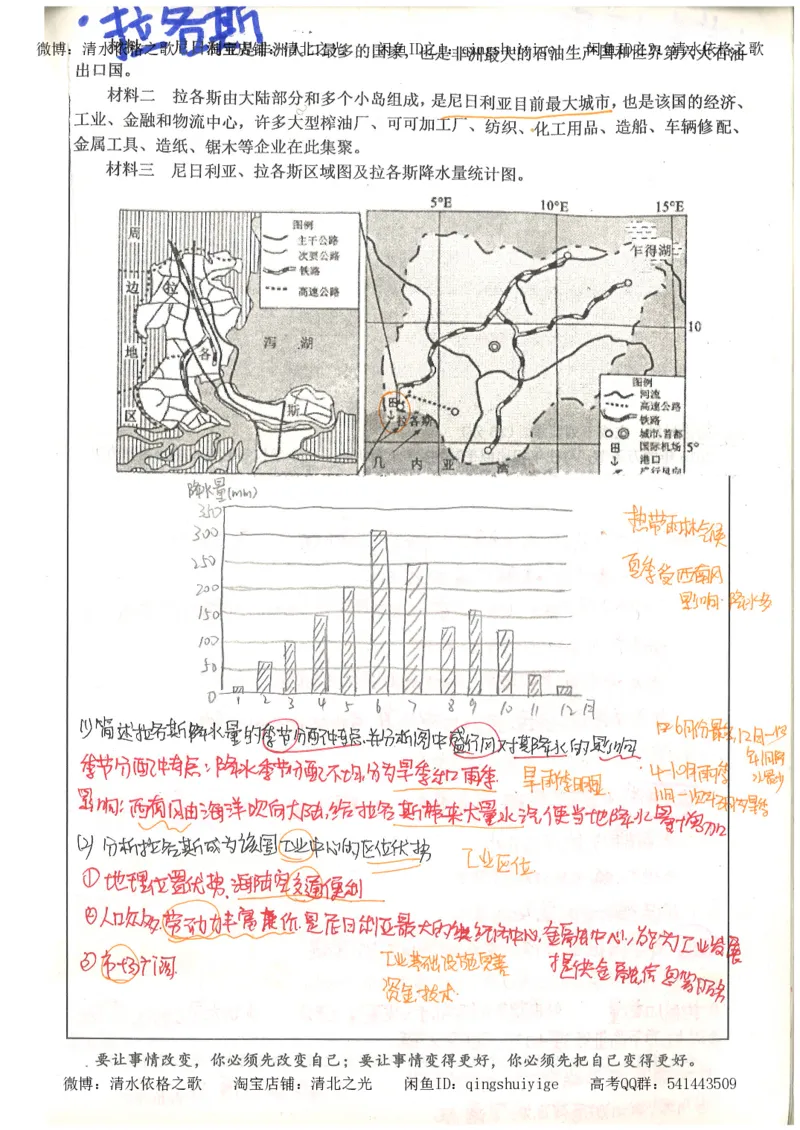 拉各斯
微博：清水依格之歌 淘宝店铺：清北之光 闲鱼ID：qingshuiyige 闲鱼ID之2：清水依格之歌
出口国。
材料二 拉各斯由大陆部分和多个小岛组成，是尼日利亚目前最大城市，也是该国的经济、
工业、金融和物流中心，许多大型榨油厂、可可加工厂、纺织、化工用品、造船、车辆修配、
金属工具、造纸、锯木等企业在此集聚。
材料三 尼日利亚、拉各斯区域图及拉各斯降水量统计图。
周
边
地
区
拉
各
斯
海 湖
图例
主干公路
次要公路
铁路
高速公路
5°E 10°E 15°E
乍得湖
10
5°
拉各斯
几 内 亚 湾
图例
河流
高速公路
铁路
城市、首都
国际机场
港口
盛行风向
降水量(mm)
350
300
250
200
150
100
50
0
1 2 3 4 5 6 7 8 9 10 11 12月
热带雨林气候
夏季受西南风
影响·降水多
(1)简述拉各斯降水量的季节分配特点,并分析图中盛行风对其降水的影响
季节分配特点：降水季节分配不均,分为旱季和雨季.
旱雨季明显
4-10月雨季
影响：西南风由海洋吹向大陆,给拉各斯带来大量水汽,使当地降水量增加
(2)分析拉各斯成为该国工业中心的区位优势
工业区位
①地理位置优势,海陆空交通便利
②人口众多,劳动力丰富廉价.是尼日利亚最大的经济中心,金融中心,能为工业发展
提供金融,信息等服务
③市场广阔
工业基础设施完善
资金.技术.
要让事情改变，你必须先改变自己；要让事情变得更好，你必须先把自己变得更好。
微博：清水依格之歌 淘宝店铺：清北之光 闲鱼ID：qingshuiyige 高考QQ群：541443509